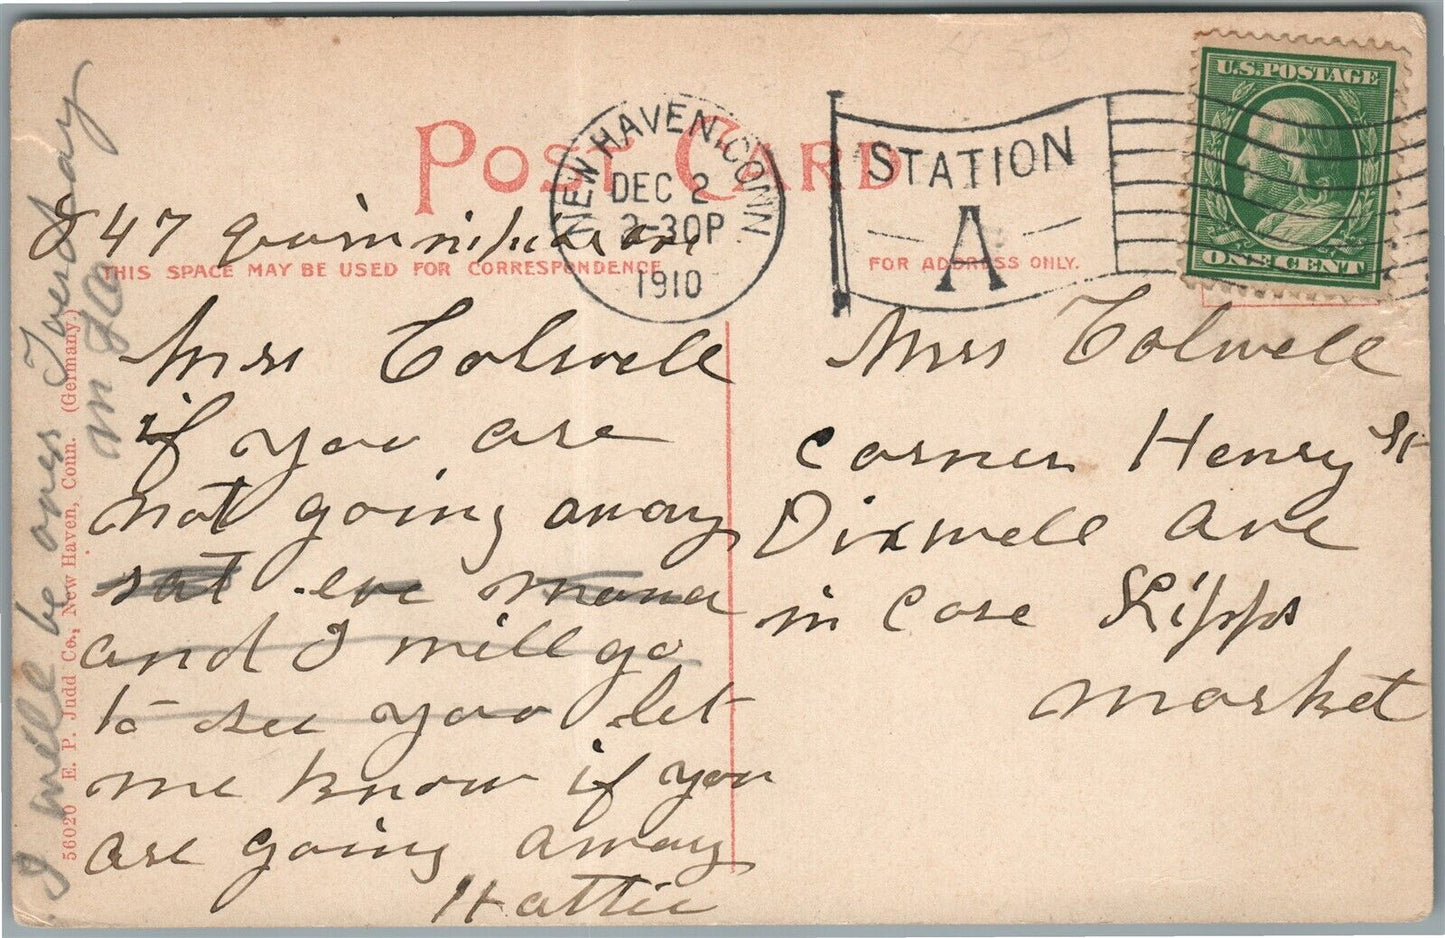 POST CARD
NEW HAVEN, CONN.
DEC 2
2-30P
1910
STATION
A
U.S. POSTAGE
ONE CENT
847 Quinnipiac ave
THIS SPACE MAY BE USED FOR CORRESPONDENCE
FOR ADDRESS ONLY.
Mrs Colwell
if you are
not going away
sat eve
and I will go
to see you let
me know if you
are going away
Hattie
Mrs Colwell
corner Henry St
Dixwell ave
in care Lipps
market
I will be over Tuesday
56020 E. P. Judd Co., New Haven, Conn. (Germany.)